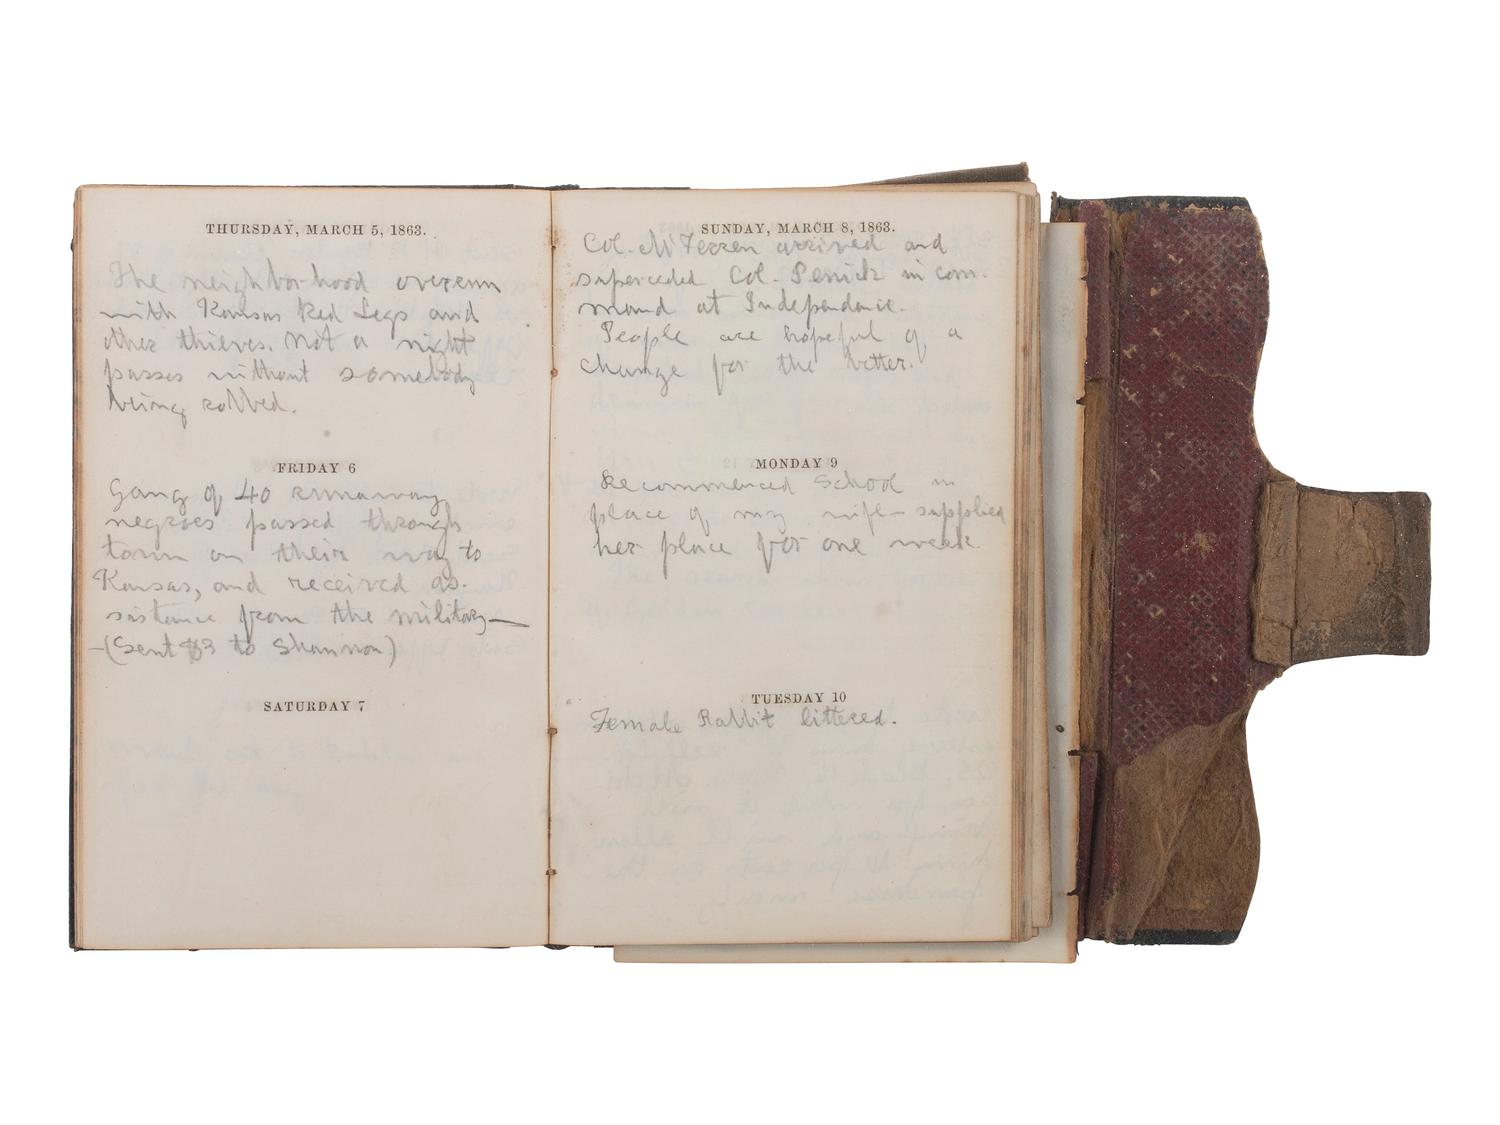 THURSDAY, MARCH 5, 1863.
The neighborhood overrun
with Kansas Red Legs and
other thieves. Not a night
passes without somebody
being robbed.
FRIDAY 6
Gang of 40 runaway
negroes passed through
town on their way to
Kansas, and received as-
sistance from the military—
—(Sent $3 to Shannon)
SATURDAY 7
SUNDAY, MARCH 8, 1863.
Col. McFerren arrived and
superceded Col. Penick in com-
mand at Independence.
People are hopeful of a
change for the better.
MONDAY 9
Recommenced School in
place of my wife— supplied
her place for one week.
TUESDAY 10
Female Rabbit littered.